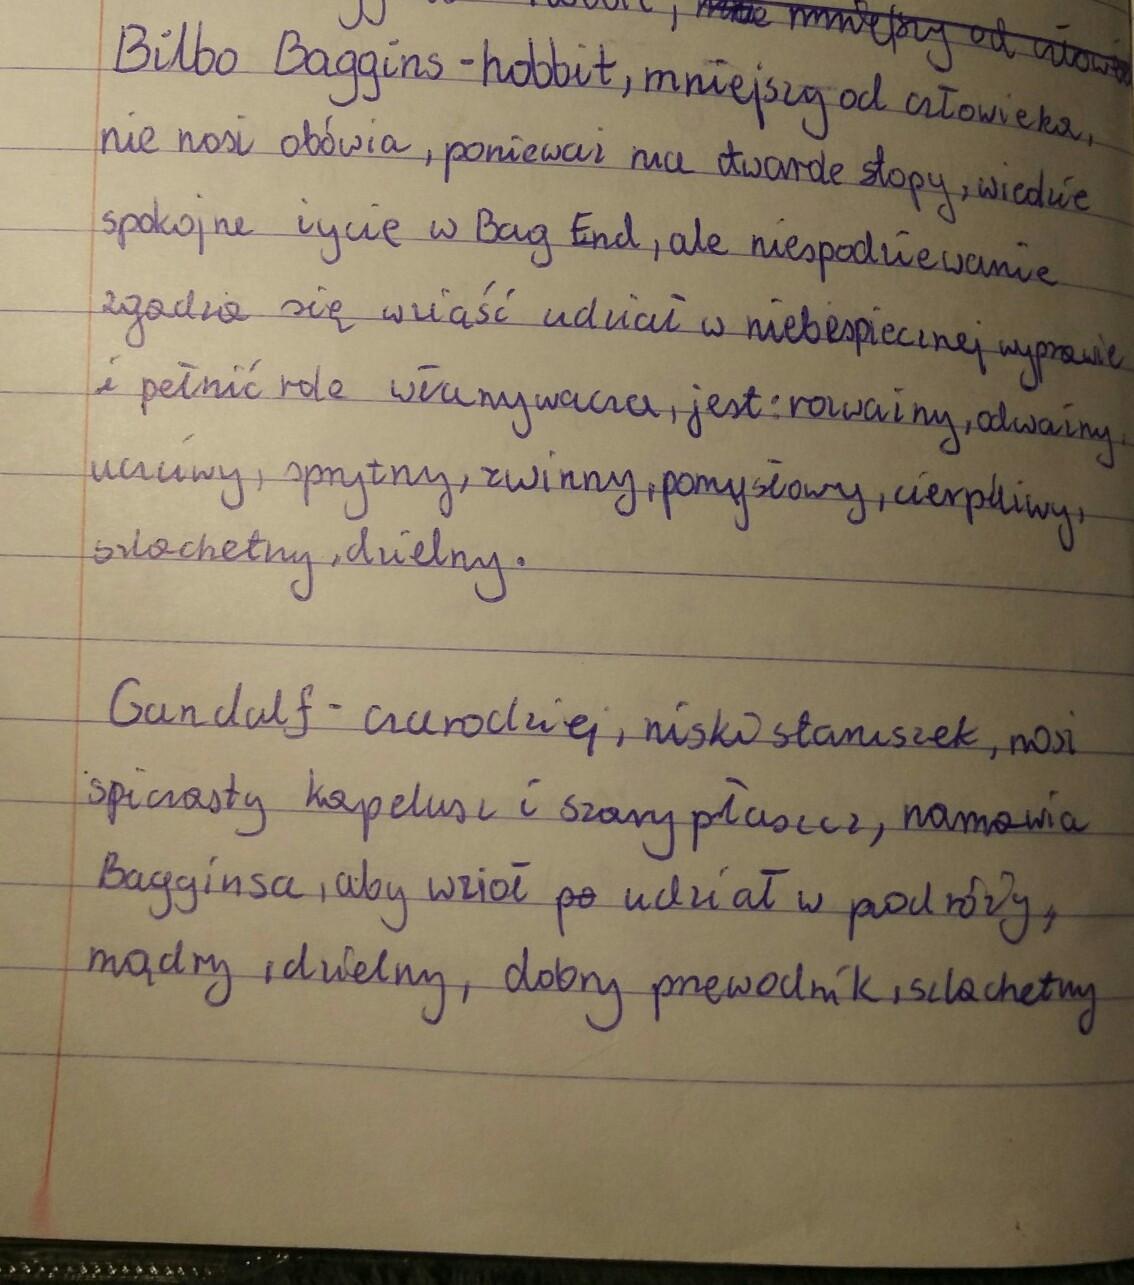 mniejszy od
Bilbo Baggins - hobbit, mniejszy od człowieka,
nie nosi obówia, ponieważ ma twarde stopy, wiedzie
spokojne życie w Bag End, ale niespodziewanie
zgadza się wziąść udział w niebespiecznej wyprawie
i pełnić role włamywacza, jest: rozważny, odważny,
uczciwy, sprytny, zwinny, pomysłowy, cierpliwy,
szlachetny, dzielny.
Gandalf - czarodziej, niski staruszek, nosi
spiczasty kapelusz i szary płaszcz, namawia
Bagginsa, aby wzioł po udział w podróży,
mądry, dzielny, dobry przewodnik, szlachetny